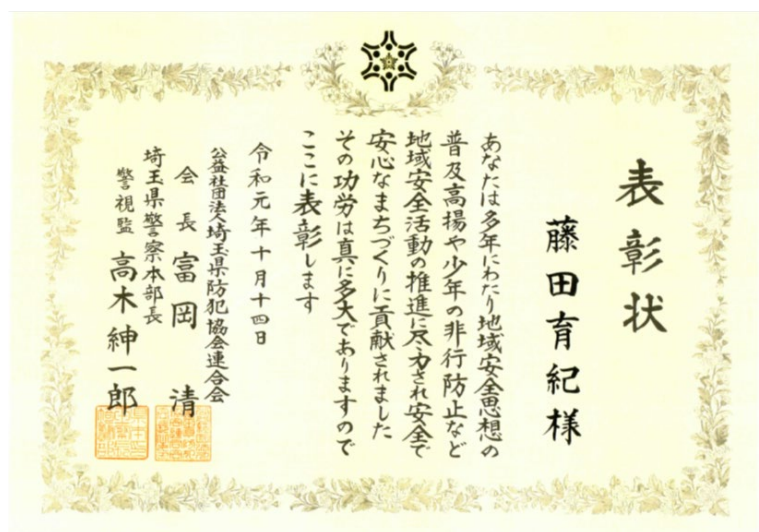 表彰状
藤田育紀様
あなたは多年にわたり地域安全思想の
普及高揚や少年の非行防止など
地域安全活動の推進に尽力され安全で
安心なまちづくりに貢献されました
その功労は真に多大でありますので
ここに表彰します
令和元年十月十四日
公益社団法人埼玉県防犯協会連合会
会長 富岡 清
埼玉県警察本部長
警視監 高木紳一郎